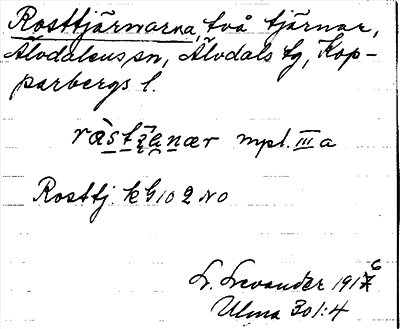 Rosttjärnarna, två tjärnar,
Älvdalens sn, Älvdals tg, Kop-
parbergs l.
mpl. III a
Rosttj. kb 10 2 NO
L. Levander 1916
Ulma 301:4